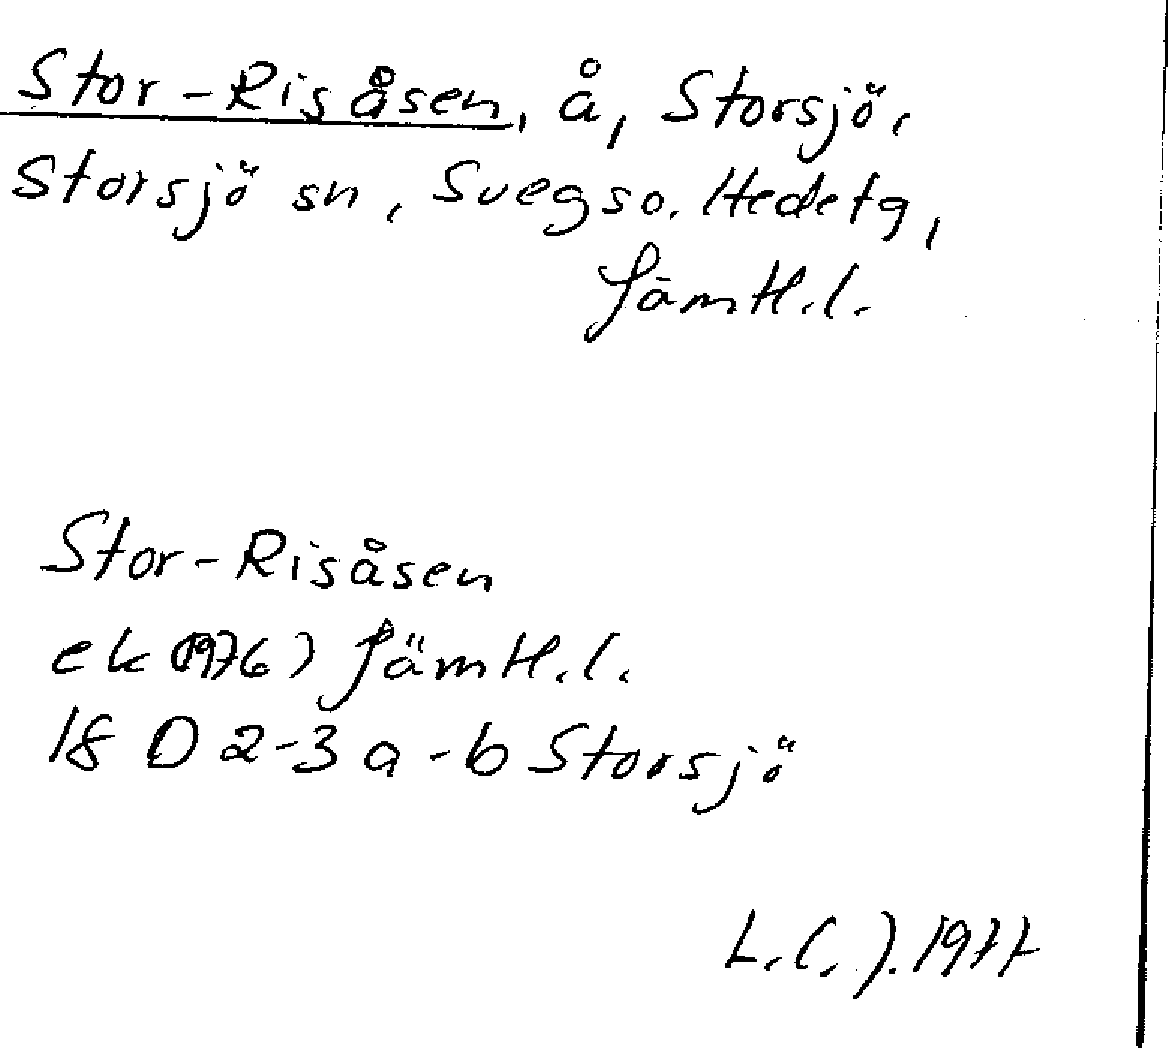 Stor-Risåsen, å, Storsjö,
Storsjö sn, Svegs o. Hede tg,
Jämtl.l.
Stor-Risåsen
ek (1976) Jämtl.l.
18 D 2-3 a-b Storsjö
L.C.J. 1977